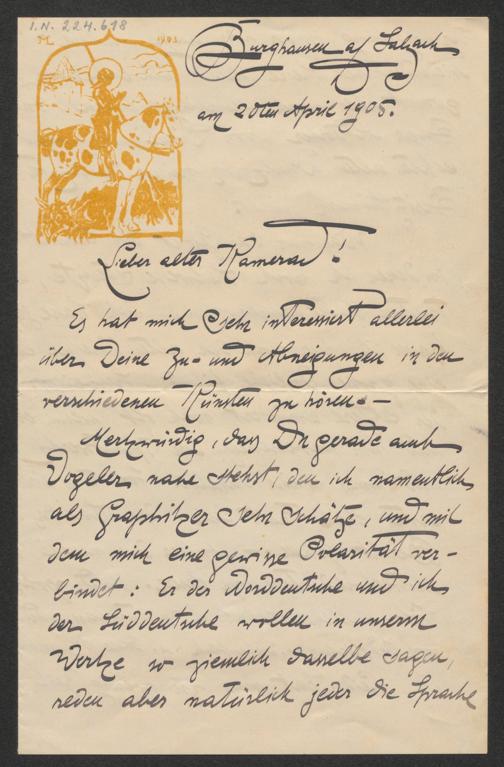 I.N. 224.618
1903
Burghausen a/ Salzach
am 20ten April 1905.
Lieber alter Kamerad!
Es hat mich sehr interessiert allerlei
über Deine Zu- und Abneigungen in den
verschiedenen Künsten zu hören. —
Merkwürdig, dass Du gerade auch
Vogeler nahe stehst, den ich namentlich
als Graphiker sehr schätze, und mit
dem mich eine gewisse Polarität ver-
bindet: Er der Norddeutsche und ich
der Süddeutsche wollen in unserm
Werke so ziemlich dasselbe sagen,
reden aber natürlich jeder die Sprache